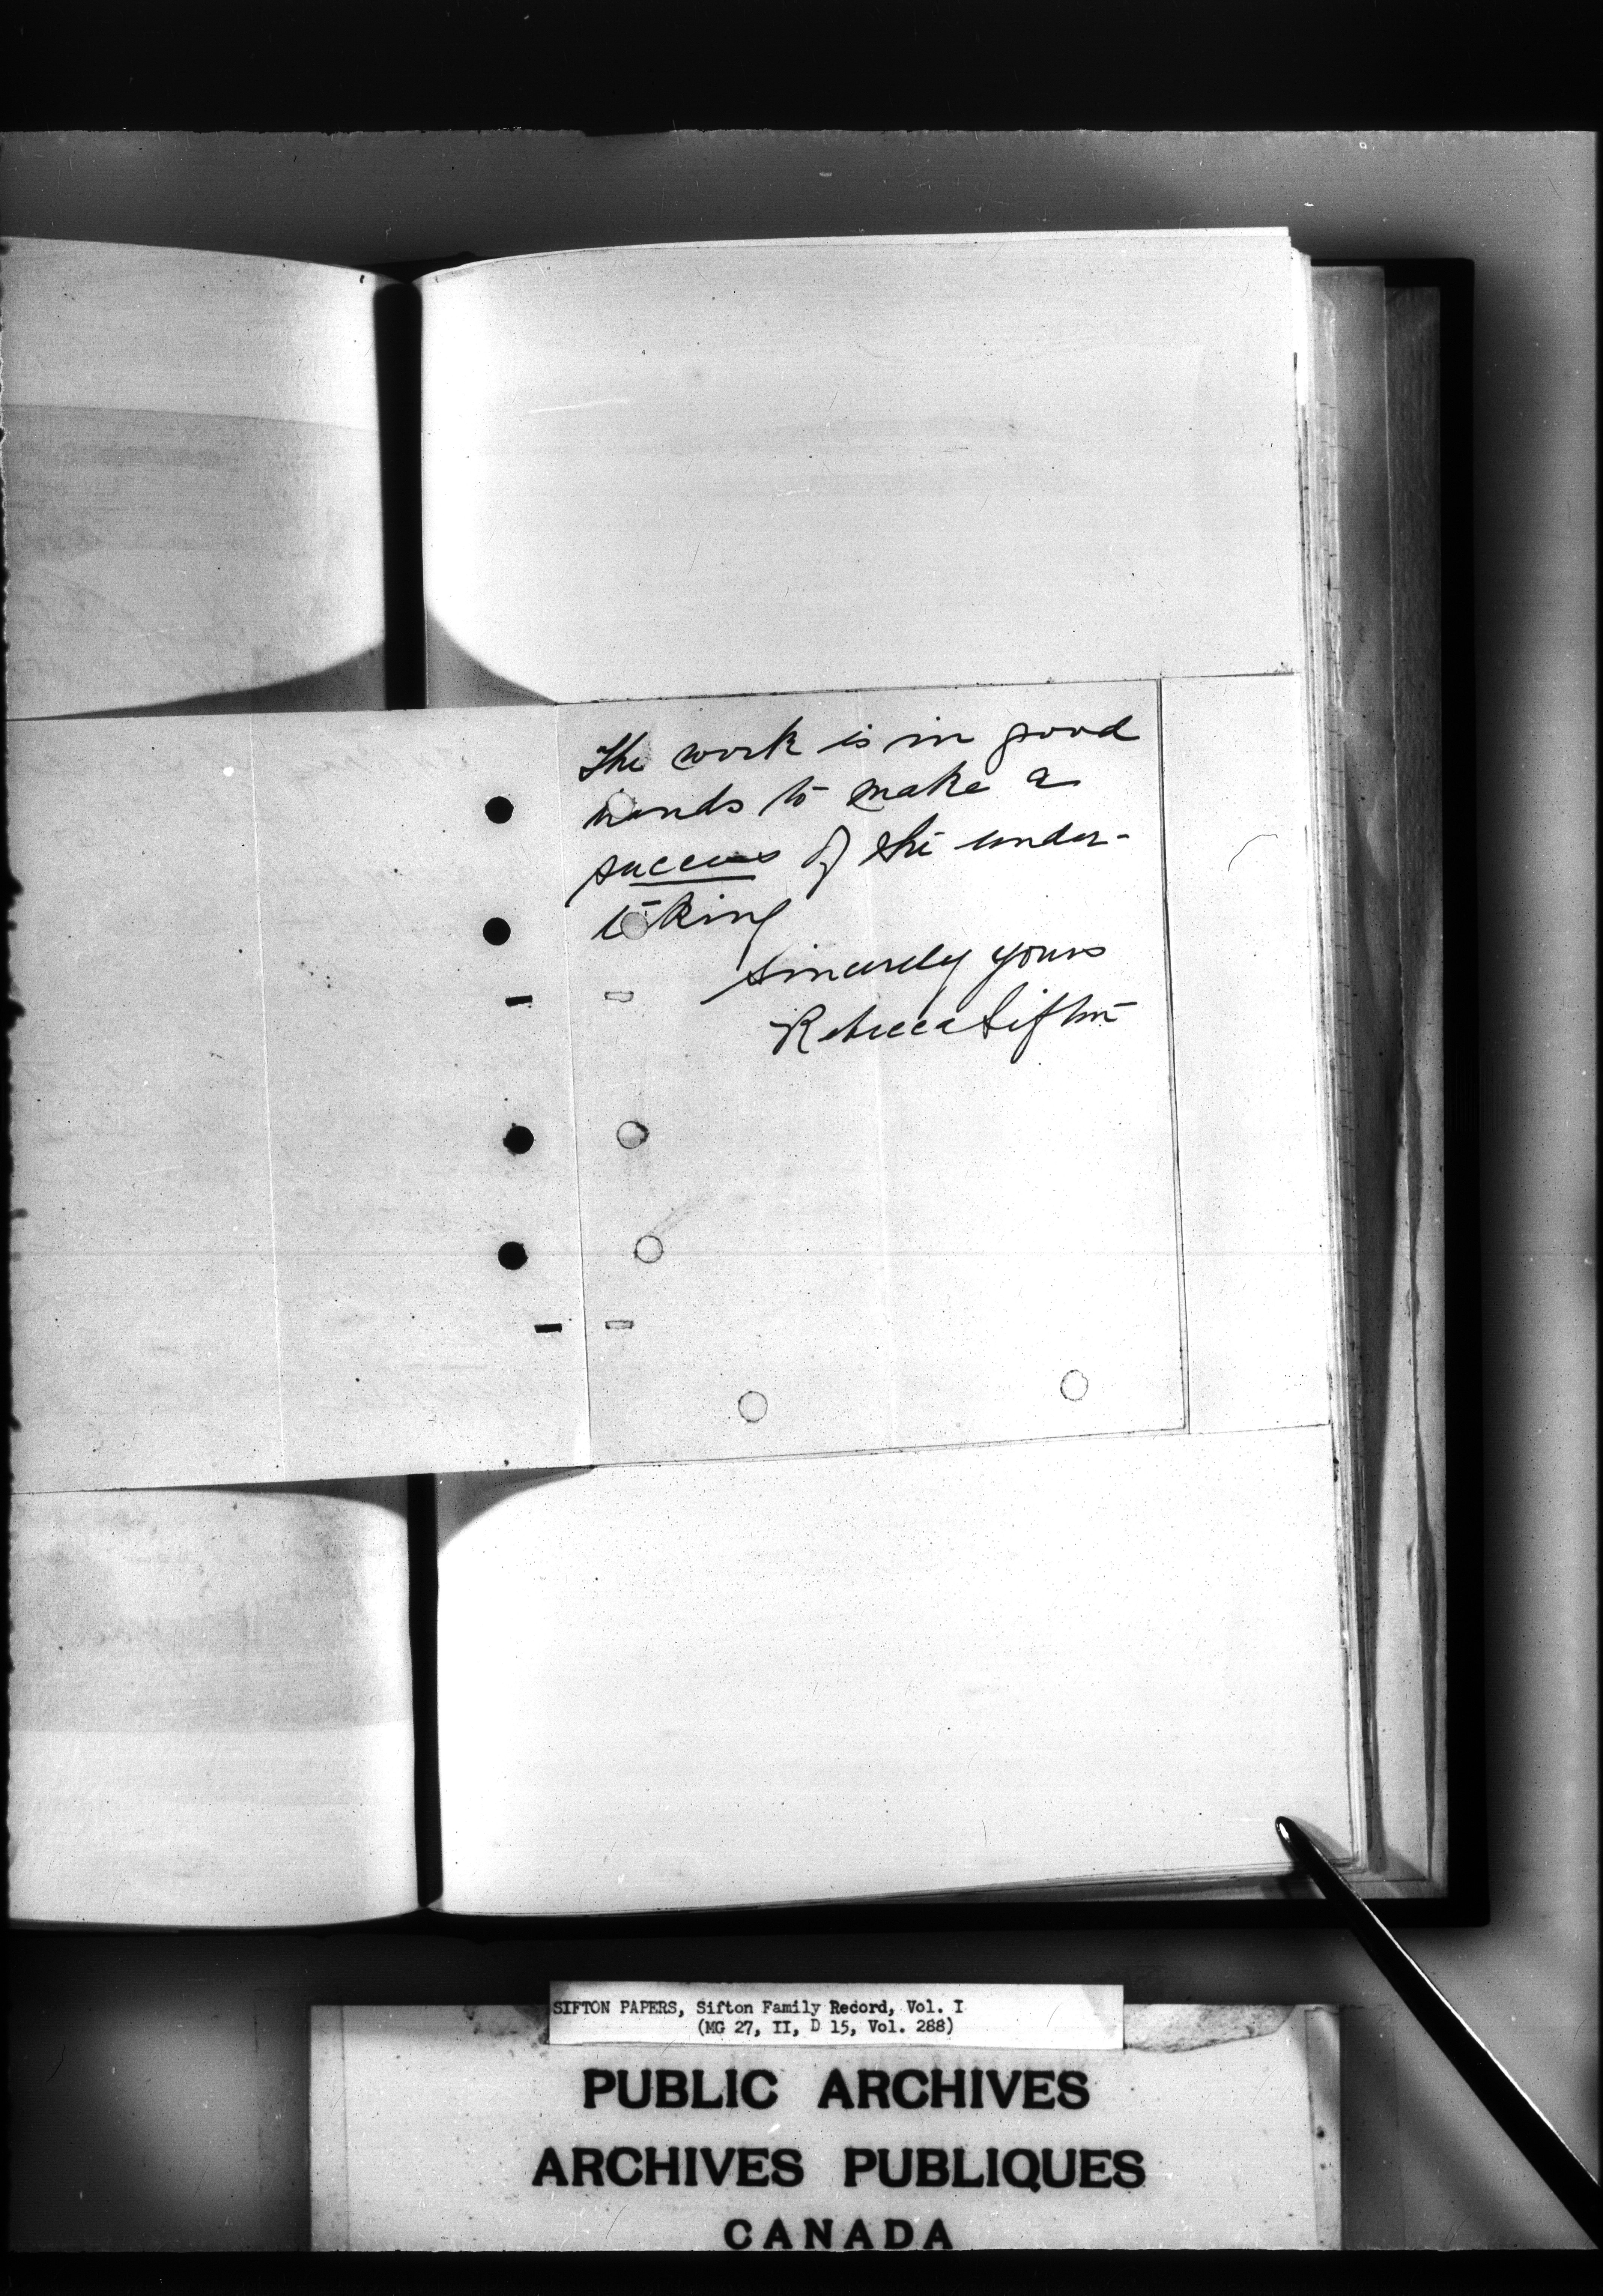 The work is in good
hands to make a
success of the under-
taking
Sincerely yours
Rebecca Sifton
SIFTON PAPERS, Sifton Family Record, Vol. I
(MG 27, II, D 15, Vol. 288)
PUBLIC ARCHIVES
ARCHIVES PUBLIQUES
CANADA